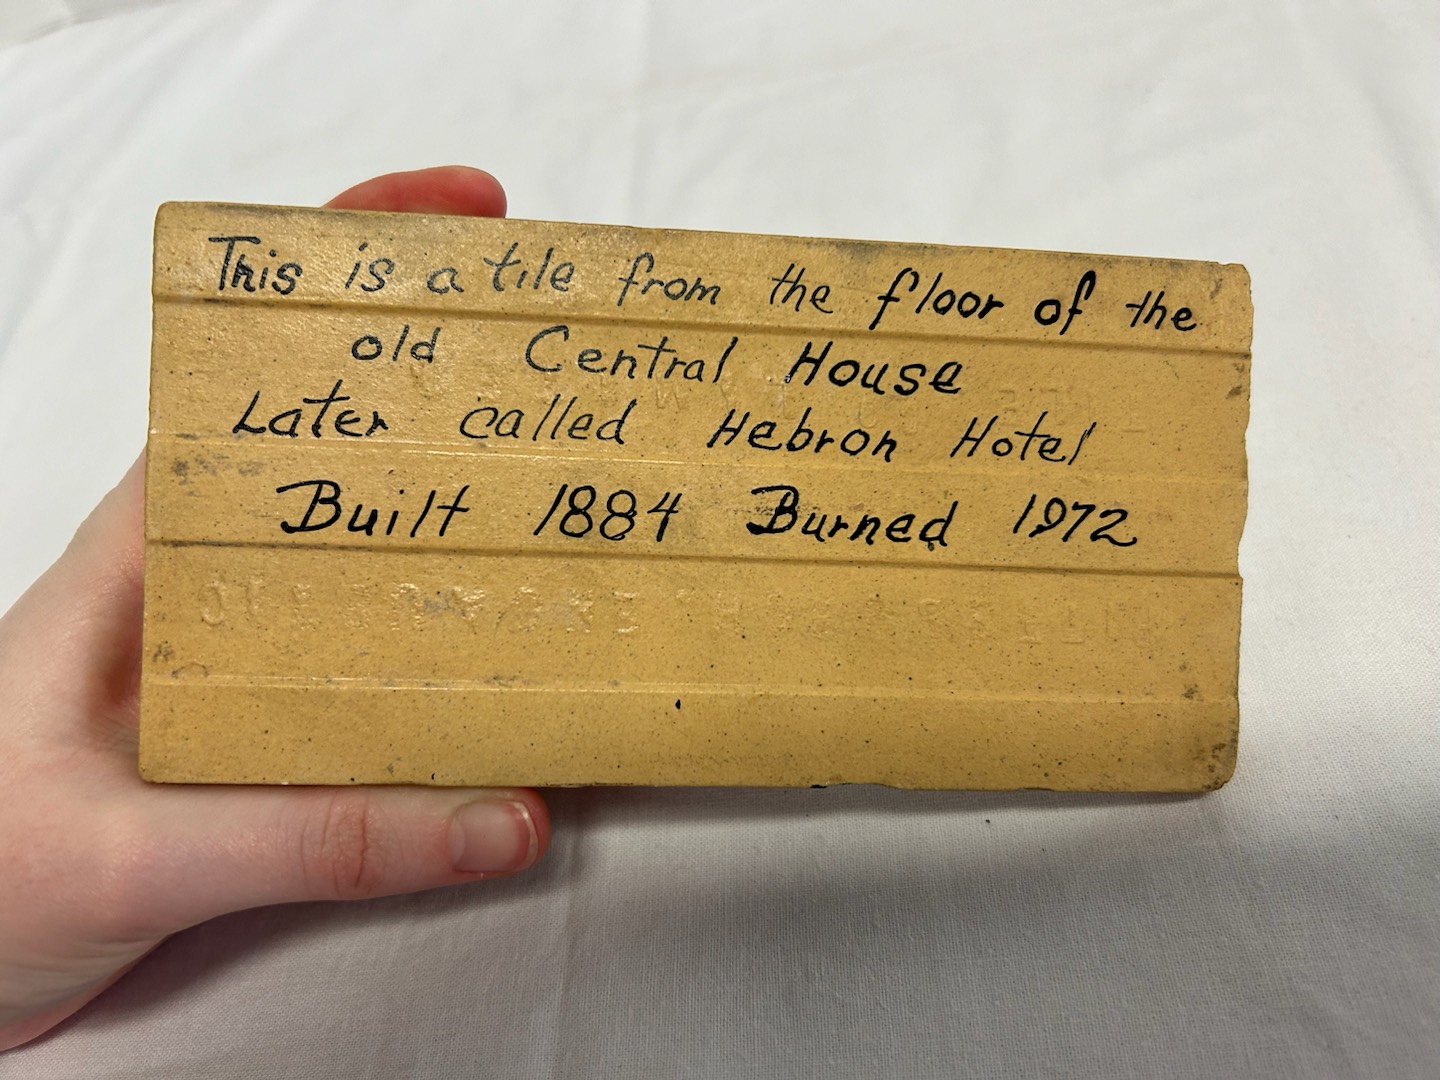 This is a tile from the floor of the
old Central House
Later called Hebron Hotel
Built 1884 Burned 1972